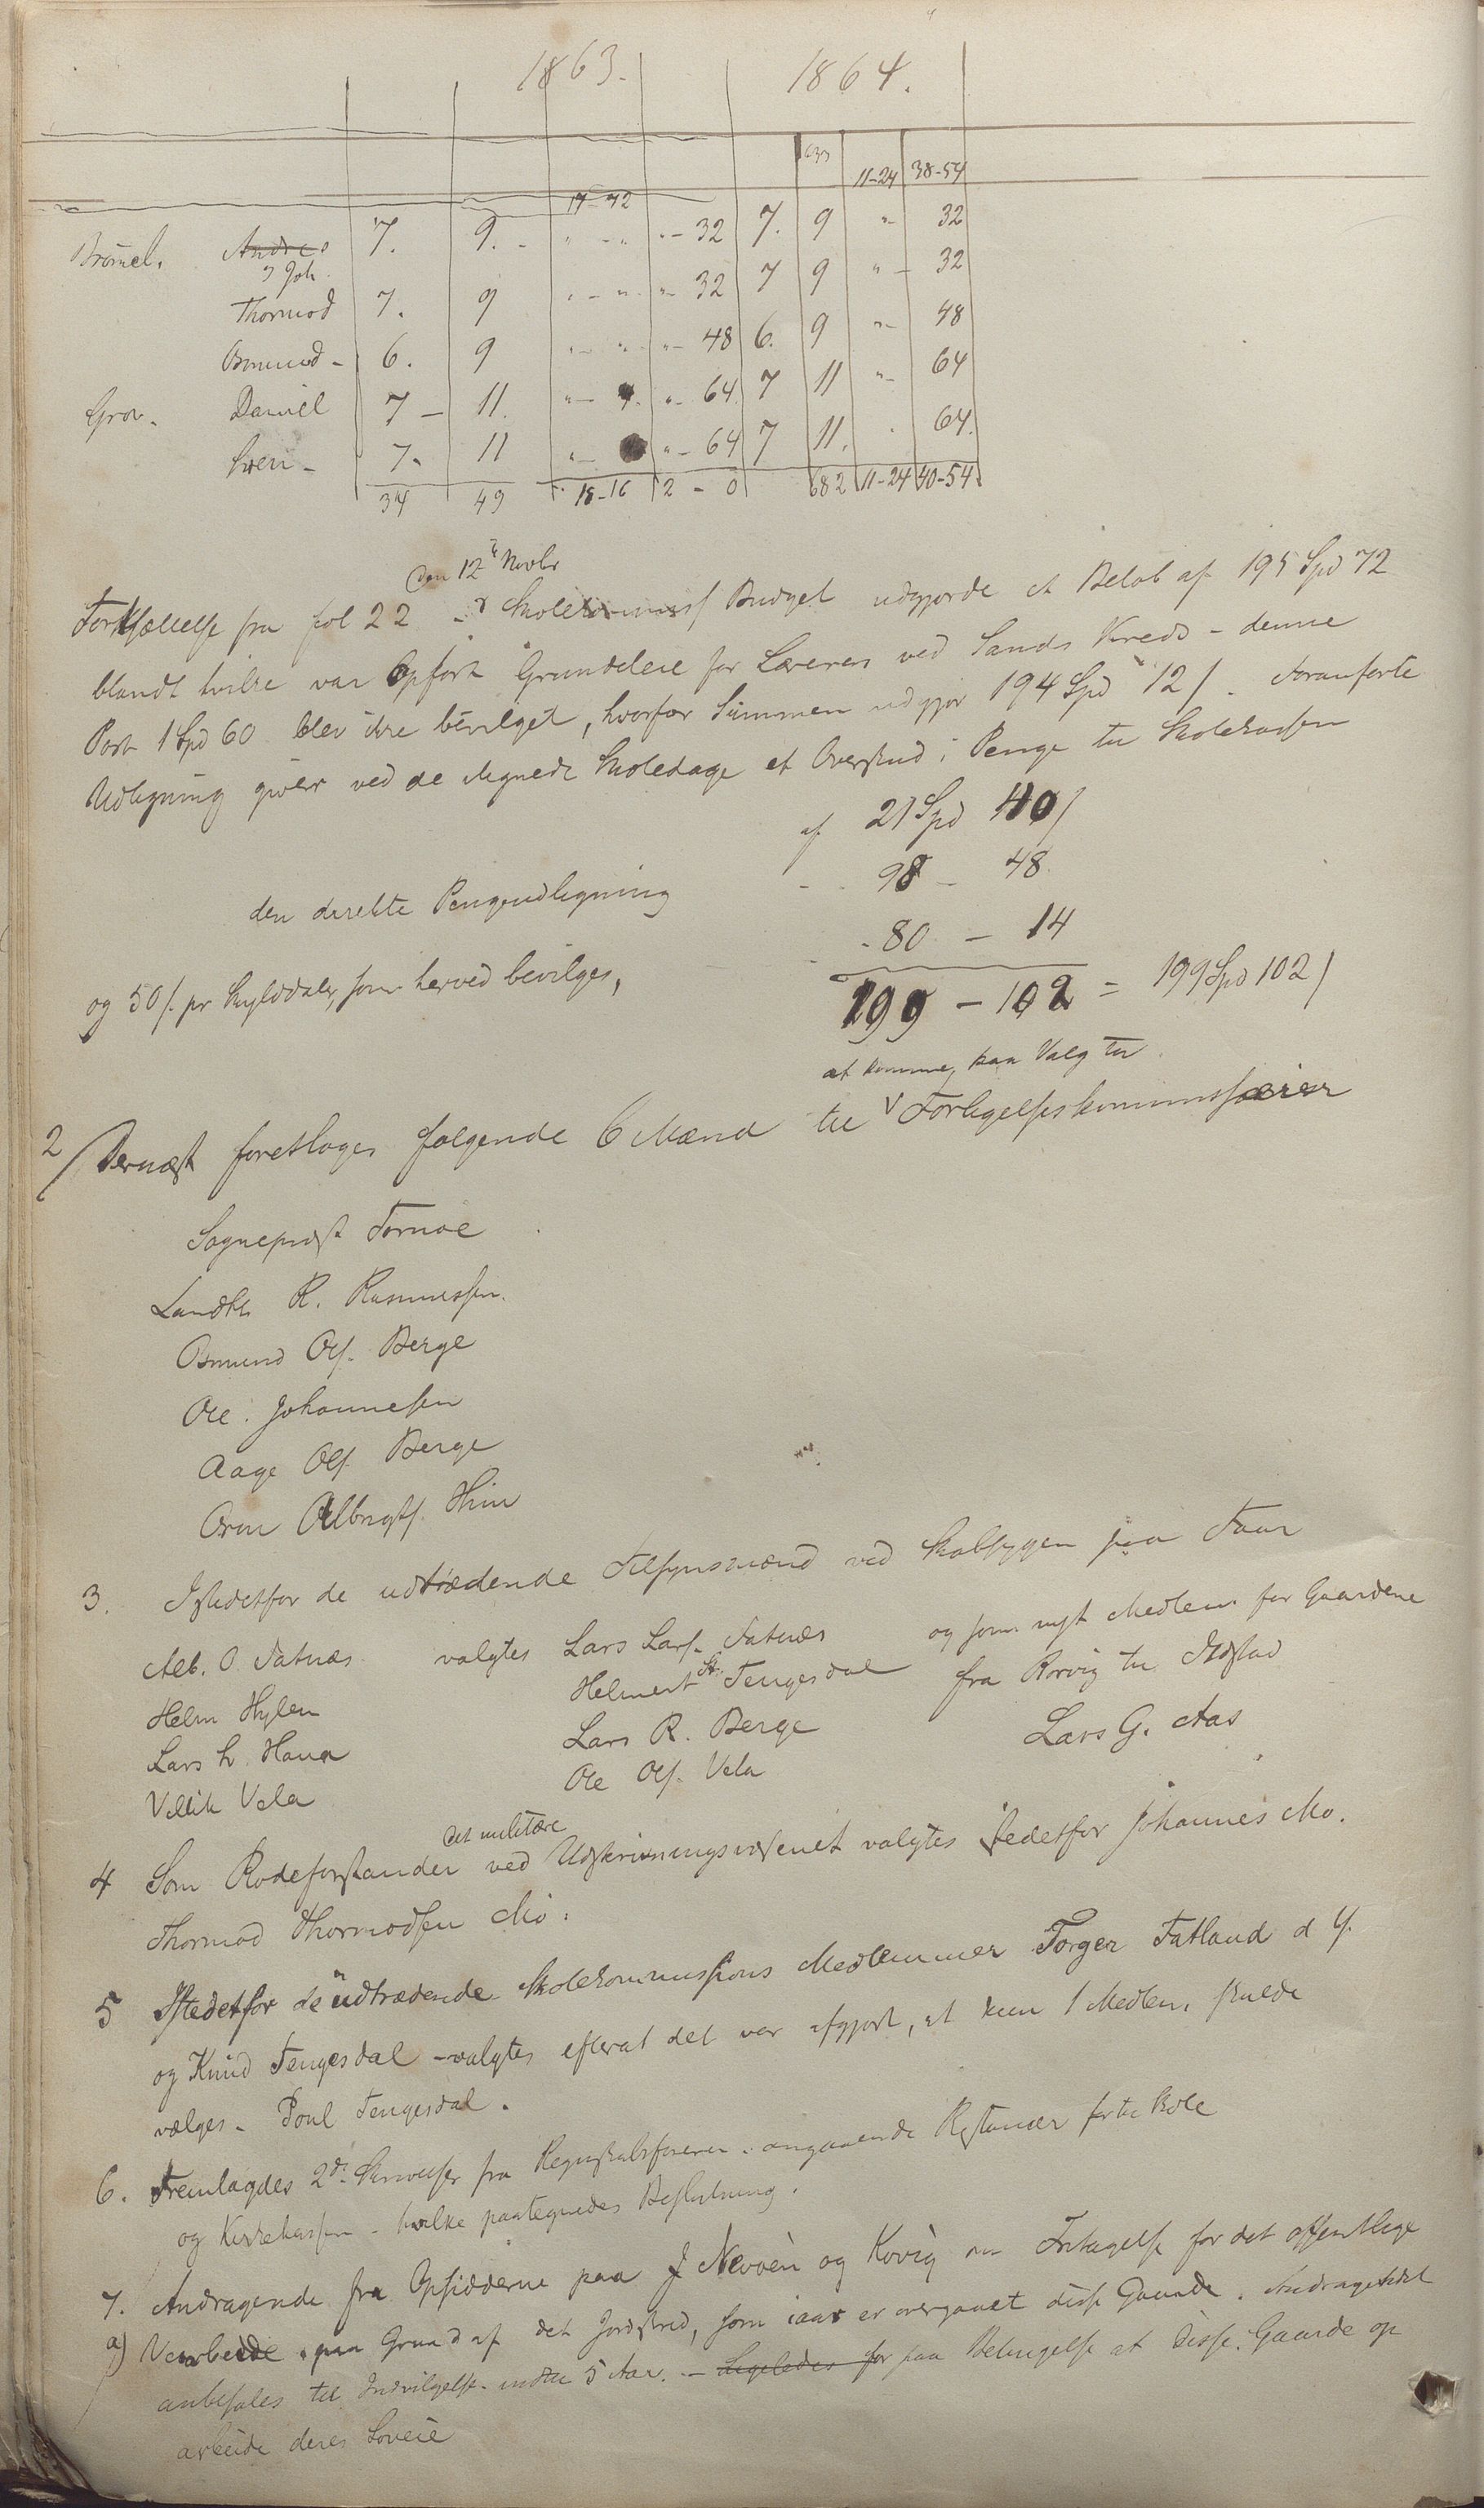 1863. 1864.
633 11-24 38-54
14-42
Brømel. Andres 7. 9. - " - " " - 32 7. 9 " - 32
Joh.
Thormod 7. 9 " - " " - 32 7 9 " - 32
Osmund - 6. 9 " - " " - 48 6. 9 " - 48
Grov. Daniel 7 - 11. " - " - 64 7 11 " - 64
Sven - 7. 11 " - " - 64 7 11. " 64.
34 49 18-16 2 - 0 682 11-24 40-54
Den 12te Novbr
Fortsættelse fra fol 22 - Skolekommiss. Budget udgjorde et Beløb af 195 Spd 72
blandt hvilke var Opført Grundeleie for Læreren ved Sands Kreds - denne
Post 1 Spd 60 blev ikke bevilget, hvorfor Summen udgjør 194 Spd 12 /. Foranførte
Udligning giver ved de lignede Skoledage et Overskud i Penge til Skolekassen
af 21 Spd 40 /
den direkte Pengeudligning - 98 - 48
og 50 /. pr Skylddaler, som herved bevilges, - 80 - 14
199 - 102 = 199 Spd 102 /
at komme paa Valg til
2/ Dernæst foretloges følgende 6 Mænd til Forligelseskommissærier
Sogneprest Tornøe
Landhl. R. Rasmussen.
Osmund Ols. Berge
Ole Johannesen
Aage Ols. Berge
Orm Albregts. Hiim
3. Istedetfor de udtrædende Tilsynsmænd ved Skabsygen paa Faar
Alb. O. Fatnæs valgtes Lars Lars. Fatnæs og som nyt Medlem for Gaardene
Helm Hylen Helmert St. Tengesdal fra Rørvig til Ilstad
Lars L. Hana Lars R. Berge Lars G. Aas
Villik Vela Ole Ols. Vela
det militære
4 Som Rodeforstander ved Udskrivningsvæsenet valgtes istedetfor Johannes Mo.
Thormod Thormodsen Mo.
5 Istedetfor de udtrædende Skolekommissions Medlemmer Torger Fatland d y.
og Knud Tengesdal - valgtes efterat det var afgjort, at kun 1 Medlem skulde
vælges - Poul Tengesdal.
6. Fremlagdes 2de Skrivelser fra Regnskabsføreren angaaende Restancer for til Skole
og Kirkekassen - hvilke paategnedes Beslutning.
7. Andragende fra Opsidderne paa J Nevøen og Kovig om Fritagelse for det offentlige
a) Veiarbeide paa Grund af det Jordskred, som iaar er overgaaet disse Gaarde. Andragendet
anbefales til Indvilgelse indtil 5 Aar. - Ligeledes for paa Betingelse at disse Gaarde op
arbeide deres Soveie